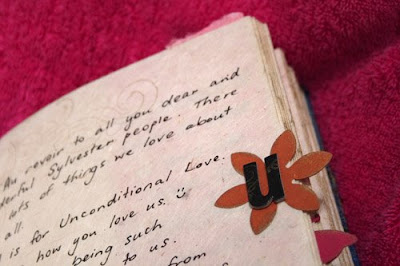 Au revoir to all you dear and
terful Sylvester people. There
lots of things we love about
all.
is for Unconditional Love.
how you love us.
being such
to us.
from
u